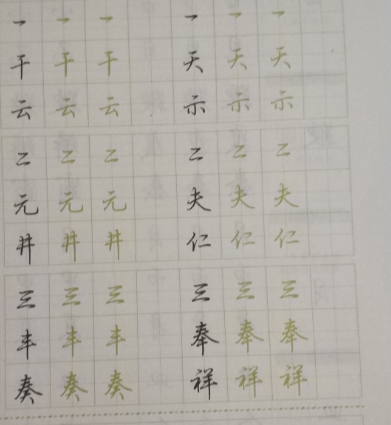 一 一 一 一 一 一
干 干 干 天 天 天
云 云 云 示 示 示
二 二 二 二 二 二
元 元 元 夫 夫 夫
井 井 井 仁 仁 仁
三 三 三 三 三 三
丰 丰 丰 奉 奉 奉
奏 奏 奏 祥 祥 祥